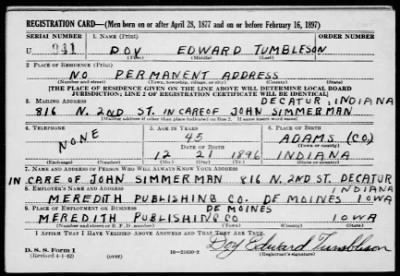 REGISTRATION CARD—(Men born on or after April 28, 1877 and on or before February 16, 1897)
SERIAL NUMBER 1. NAME (Print) ORDER NUMBER
U 241 DOY EDWARD TUMBLESON
2. PLACE OF RESIDENCE (Print)
NO PERMANENT ADDRESS
(Number and street) (Town, township, village, or city) (County) (State)
[THE PLACE OF RESIDENCE GIVEN ON THE LINE ABOVE WILL DETERMINE LOCAL BOARD
JURISDICTION; LINE 2 OF REGISTRATION CERTIFICATE WILL BE IDENTICAL]
3. MAILING ADDRESS DECATUR, INDIANA
816 N. 2ND ST. IN CARE OF JOHN SIMMERMAN
(Mailing address if other than place indicated on line 2. If same insert word same)
4. TELEPHONE 5. AGE IN YEARS 6. PLACE OF BIRTH
NONE 45 ADAMS (CO.)
DATE OF BIRTH (Town or county)
12 21 1896 INDIANA
(Exchange) (Number) (Mo.) (Day) (Yr.) (State or country)
7. NAME AND ADDRESS OF PERSON WHO WILL ALWAYS KNOW YOUR ADDRESS
IN CARE OF JOHN SIMMERMAN 816 N. 2ND ST. DECATUR
INDIANA
8. EMPLOYER'S NAME AND ADDRESS
MEREDITH PUBLISHING CO. DE MOINES IOWA
9. PLACE OF EMPLOYMENT OR BUSINESS DE MOINES
MEREDITH PUBLISHING CO IOWA
(Number and street or R. F. D. number) (Town) (County) (State)
I AFFIRM THAT I HAVE VERIFIED ABOVE ANSWERS AND THAT THEY ARE TRUE.
D. S. S. Form 1
(Revised 4-1-42) (over) 16-21630-2 Doy Edward Tumbleson
(Registrant's signature)